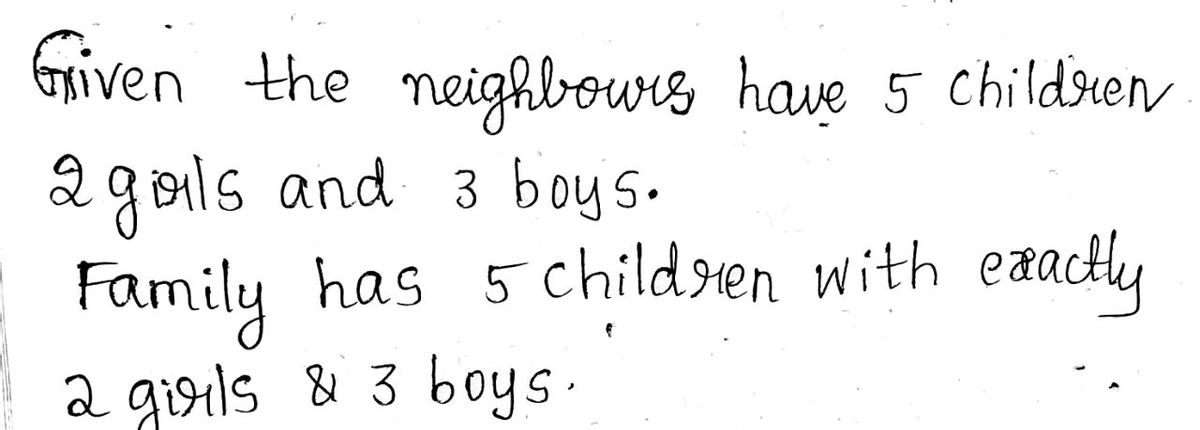 Given the neighbours have 5 children
2 girls and 3 boys.
Family has 5 children with exactly
2 girls & 3 boys.